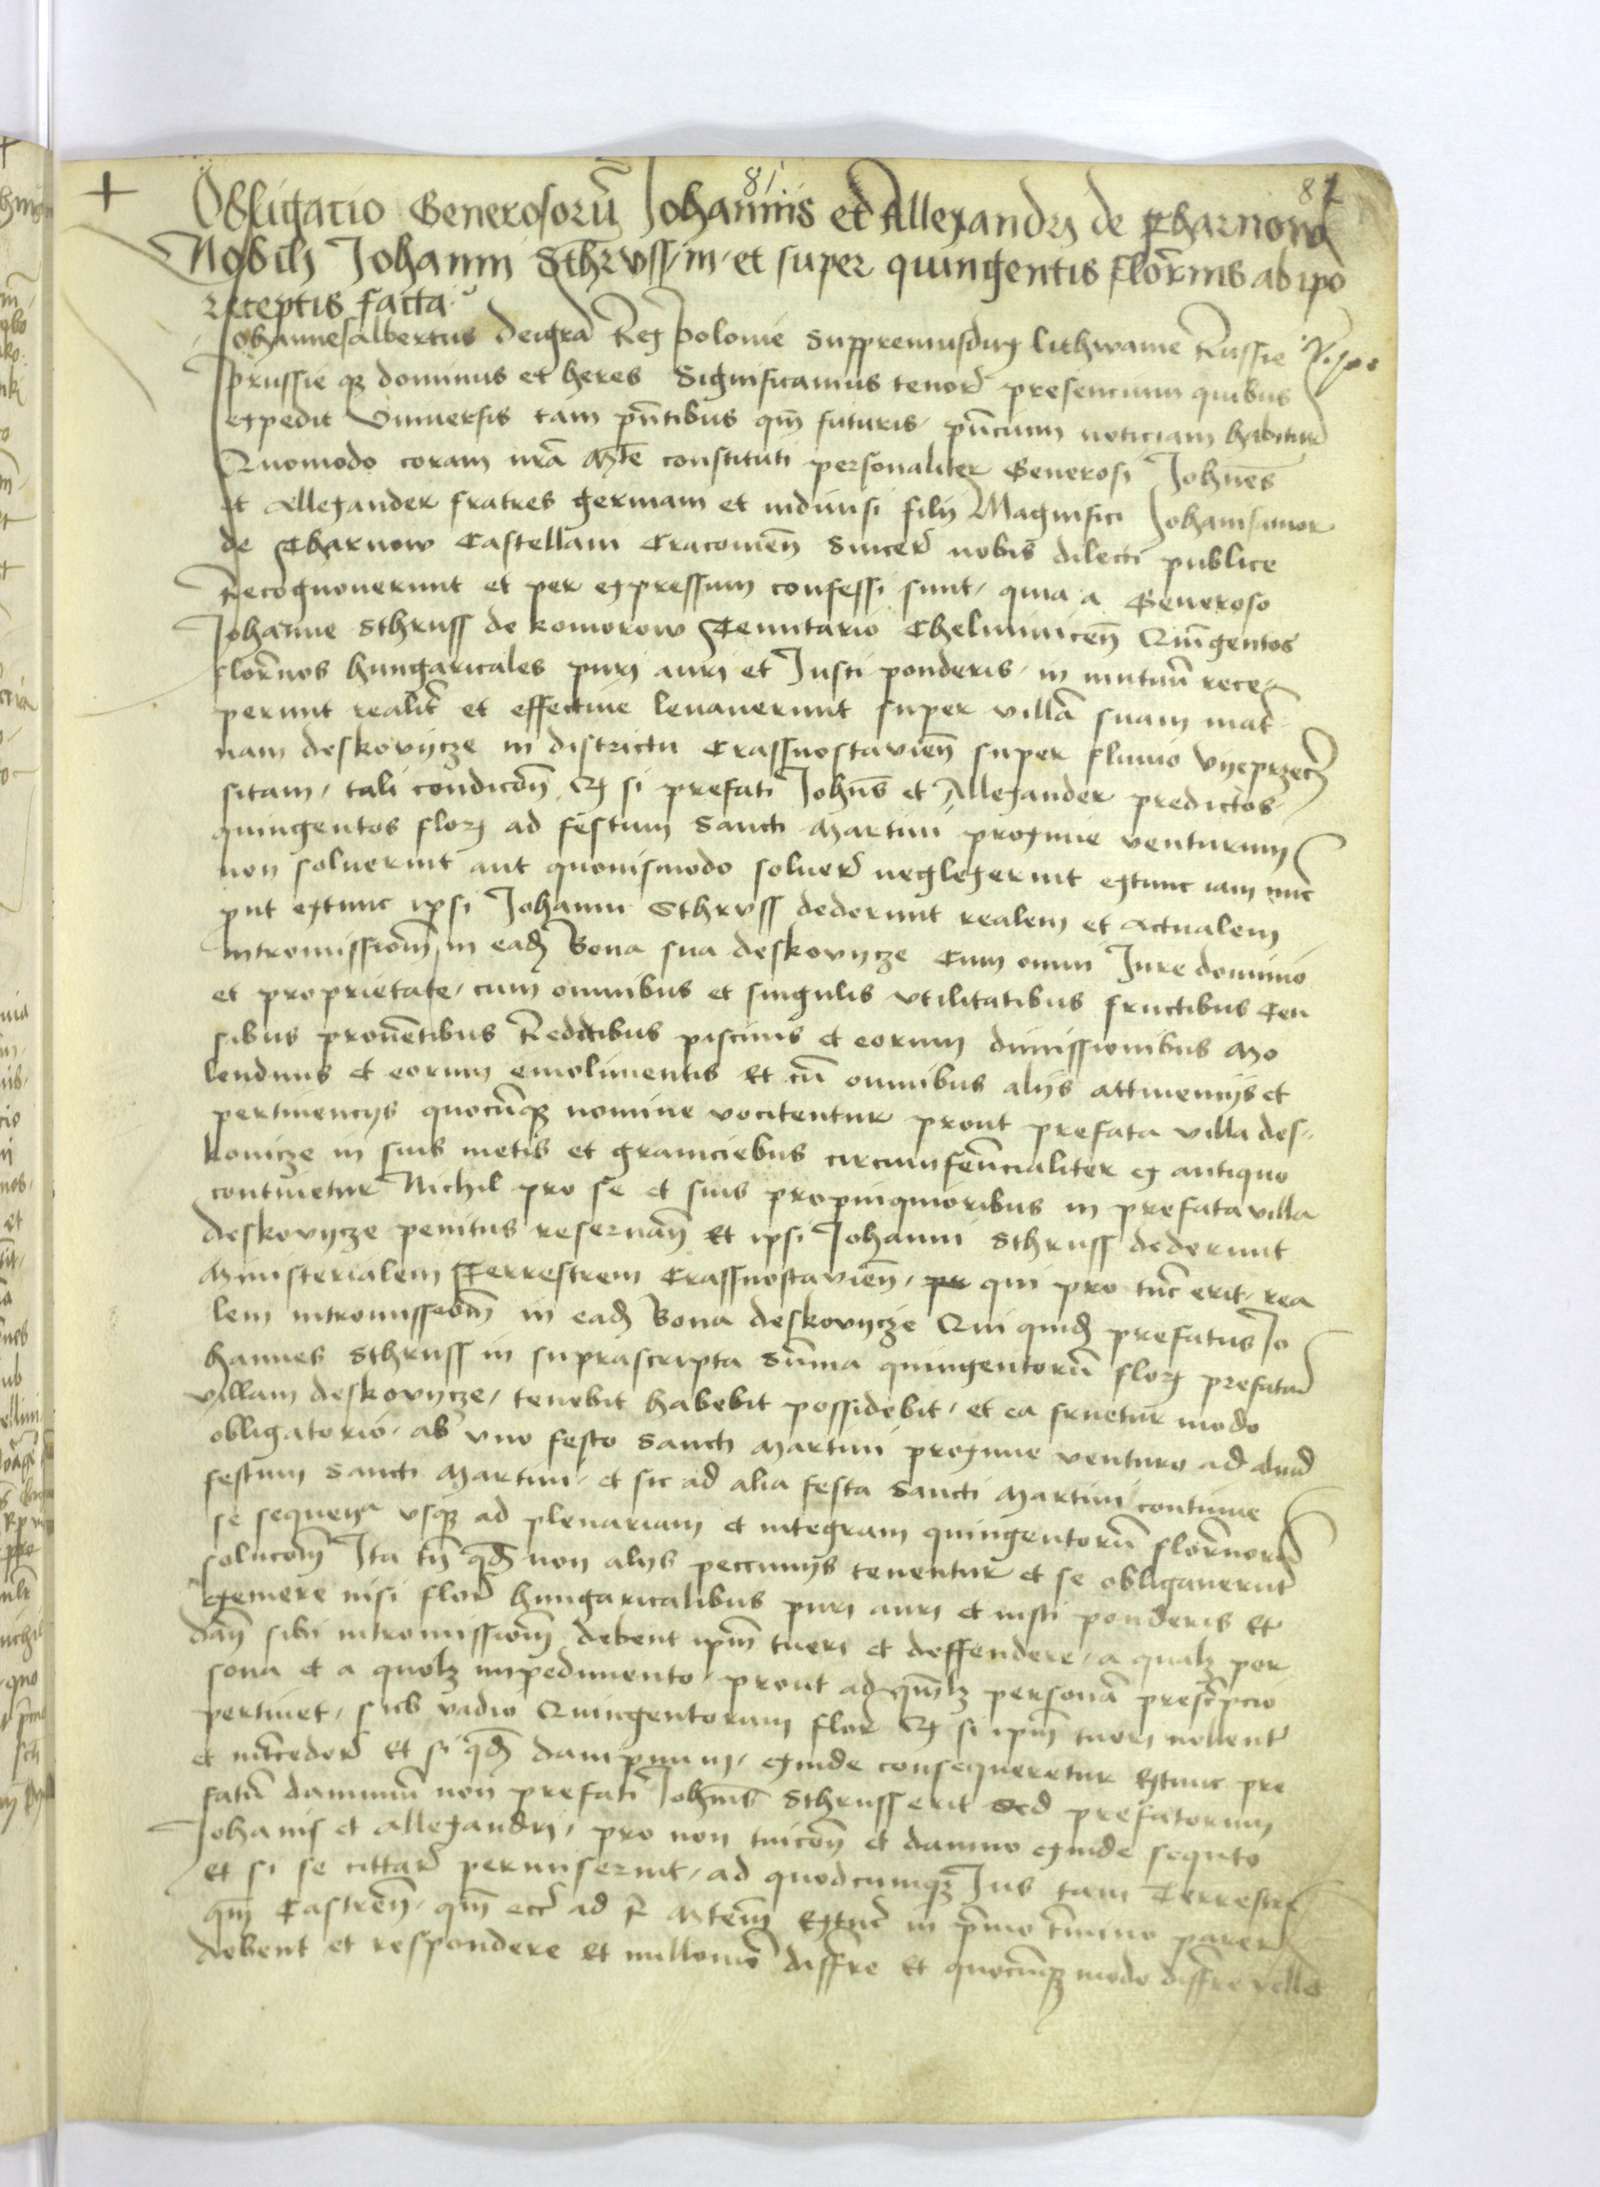 81 82
Obligacio Generosorũ Johannis et Allexandry de Tharnow
Nobili Johanni Sthruss in et super quingentis florẽnis ab ipo
receptis facta
Johannes albertus deigrã Rex Polonie Suppremusdux lithwanie Russie
prussie qz dominus et heres Significamus tenorẽ presencium quibus
expedit Vniuersis tam pñtibus qm̃ futuris pñcium noticiam habitur
Quomodo coram nrã Mte constituti personaliter Generosi Johñes
et Allexander fratres germani et indiuisi filij Magnifici Johanis
de Tharnow Castellani Cracouieñ Sincerẽ nobis dilecti publice
Recognouerunt et per expressum confessi sunt quia a Generoso
Johanne Sthruss de komorow Tenutario Quĩgentos
florẽnos hungaricales puri auri et Justi ponderis in mutuũ rece
perunt realitẽ et effectiue leuauerunt super villã suam mat
nam deskovycze in districtu Crassnostavieñ super fluuio vyeprzecz
sitam tali condicoñ qz si prefati Johñs et Allexander predictos
quingentos florz ad festum Sancti Martini proxime venturum
non soluerint aut quouismodo soluerẽ neglexerint extunc iam nũc
put extunc ipsi Johanni Sthrvss dederunt realem et actualem
Intromissiom̃ in eadz Bona sua deskovycze Cum omni Jure dominio
et proprietate cum omnibus et singulis vtilitatibus fructibus Cen
sibus prouẽtibus Redditibus piscinis et eorum dimissionibus Mo
lendinis et eorum emolimentis Et cũ omnibus alijs attinencijs et
pertinencijs quocũqz nomine vocitentur prout prefata villa des
kovicze in suis metis et graniciebus circumferẽncialiter ex antiquo
continetur Nichil pro se et suis propinquioribus in prefata villa
deskovycze penitus reseruañ Et ipsi Johanni Sthruss dederunt
Ministerialem Terrestrem Crassnostavieñ qui pro tũc erit rea
lem intromissiom̃ in eadz Bona deskovycze Qui quidz prefatus Jo
hannes Sthruss in suprascripta Sũma quingentorũ florz prefatã
villam deskovycze tenebit habebit possidebit et ea fruetur modo
obligatorio ab vno festo Sancti Martini proxime venturo ad aliud
festum Sancti Martini et sic ad alia festa Sancti Martini continue
se sequeñ vsqz ad plenariam et integram quingentorũ florẽnorũ
solucom̃ Ita tñ qd non alijs peccunijs tenentur et se obligauerunt
exemere nisi florẽ hungaricalibus puri auri et iusti ponderis Et
dañ sibi intromissiom̃ debent ipm̃ tueri et deffendere a qualz per
sona et a quolz impedimento prout ad qmlz personã prescripcio
pertinet sub vadio Quingentorum florẽ qz si ipm̃ tueri nollent
et intercederẽ Et si qd dampnum exinde consequeretur Extunc pre
fatũ damnũ non prefati Johñis Sthruss erit Sed prefatorum
Johanis et Allexandri pro non tuicoñ et damno exinde sequto
Et si se cittarẽ permiserint ad quodcumqz Jus tam Terrestre
qm̃ Castreñ qm̃ ad R Mtem̃ Extũc in primo tm̃ino parerẽ
debent et respondere Et differre Et quocũqz modo differre